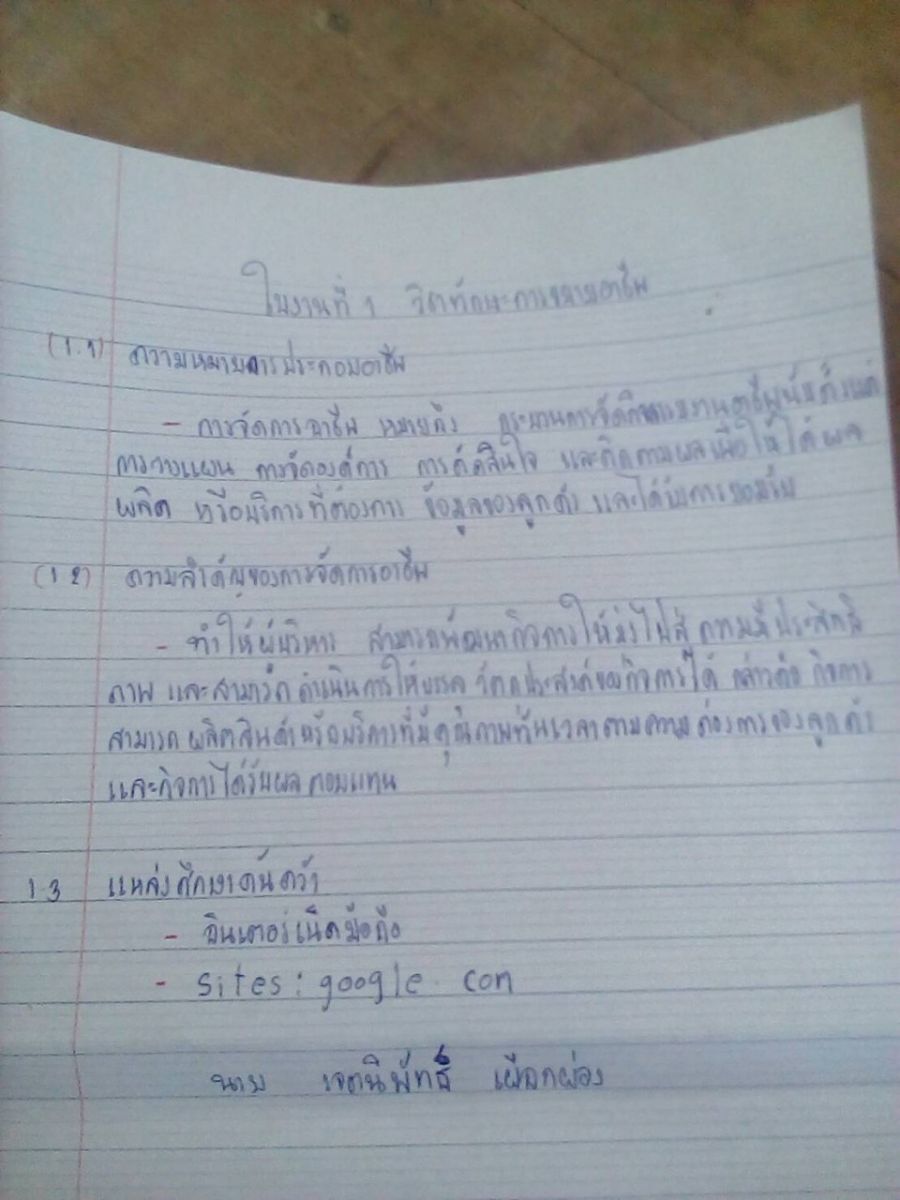 ใบงานที่ 1 วิชาทักษะการขยายอาชีพ
(1.1) ความหมายการประกอบอาชีพ
- การจัดการอาชีพ หมายถึง กระบวนการจัดกิจกรรมงานอาชีพนับตั้งแต่
การวางแผน การจัดองค์การ การตัดสินใจ และติดตามผลเพื่อให้ได้ผล
ผลิต หรือบริการที่ต้องการ ข้อมูลของลูกค้า และได้รับการยอมรับ
(1 2) ความสำคัญของการจัดการอาชีพ
- ทำให้ผู้บริหาร สามารถพัฒนากิจการให้มุ่งไปสู่ความมีประสิทธิ
ภาพ และสามารถ ดำเนินการให้บรรลุ วัตถุประสงค์ของกิจการได้ กล่าวคือ กิจการ
สามารถ ผลิตสินค้าหรือบริการที่มีคุณภาพทันเวลาตามความต้องการของลูกค้า
และกิจการได้รับผลตอบแทน
1.3 แหล่งศึกษาค้นคว้า
- อินเตอร์เน็ตมือถือ
- sites: google. con
นาย เจตนิพัทธ์ เผือกผ่อง